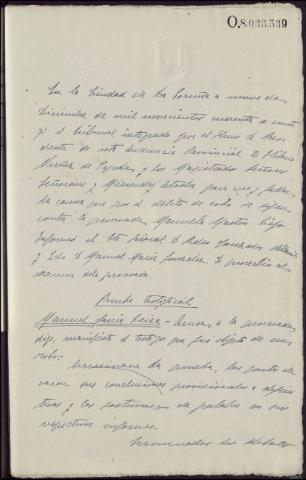 O.8.036.539
En la Ciudad de La Coruña a nueve de
Diciembre de mil novecientos cuarenta y
y el tribunal integrado por el Ilmo Sr Presi
dente de esta Audiencia Provincial D.
de y los Magistrados Señores
Señorans y para ver y fallar
la causa que por el delito de robo se sigue
contra la procesada Manuela
Informó el Sr fiscal D. Pedro González
y Ldo D. Manuel González. Se procedió al
examen de la procesada.
Prueba testifical
Manuel García - Acusa a la procesada
digo, manifiesta el testigo que fué objeto de un
robo.
Terminada la prueba, las partes ele
varon sus conclusiones provisionales a defini
tivas y las sostuvieron de palabra en sus
respectivos informes.
Terminados los debates